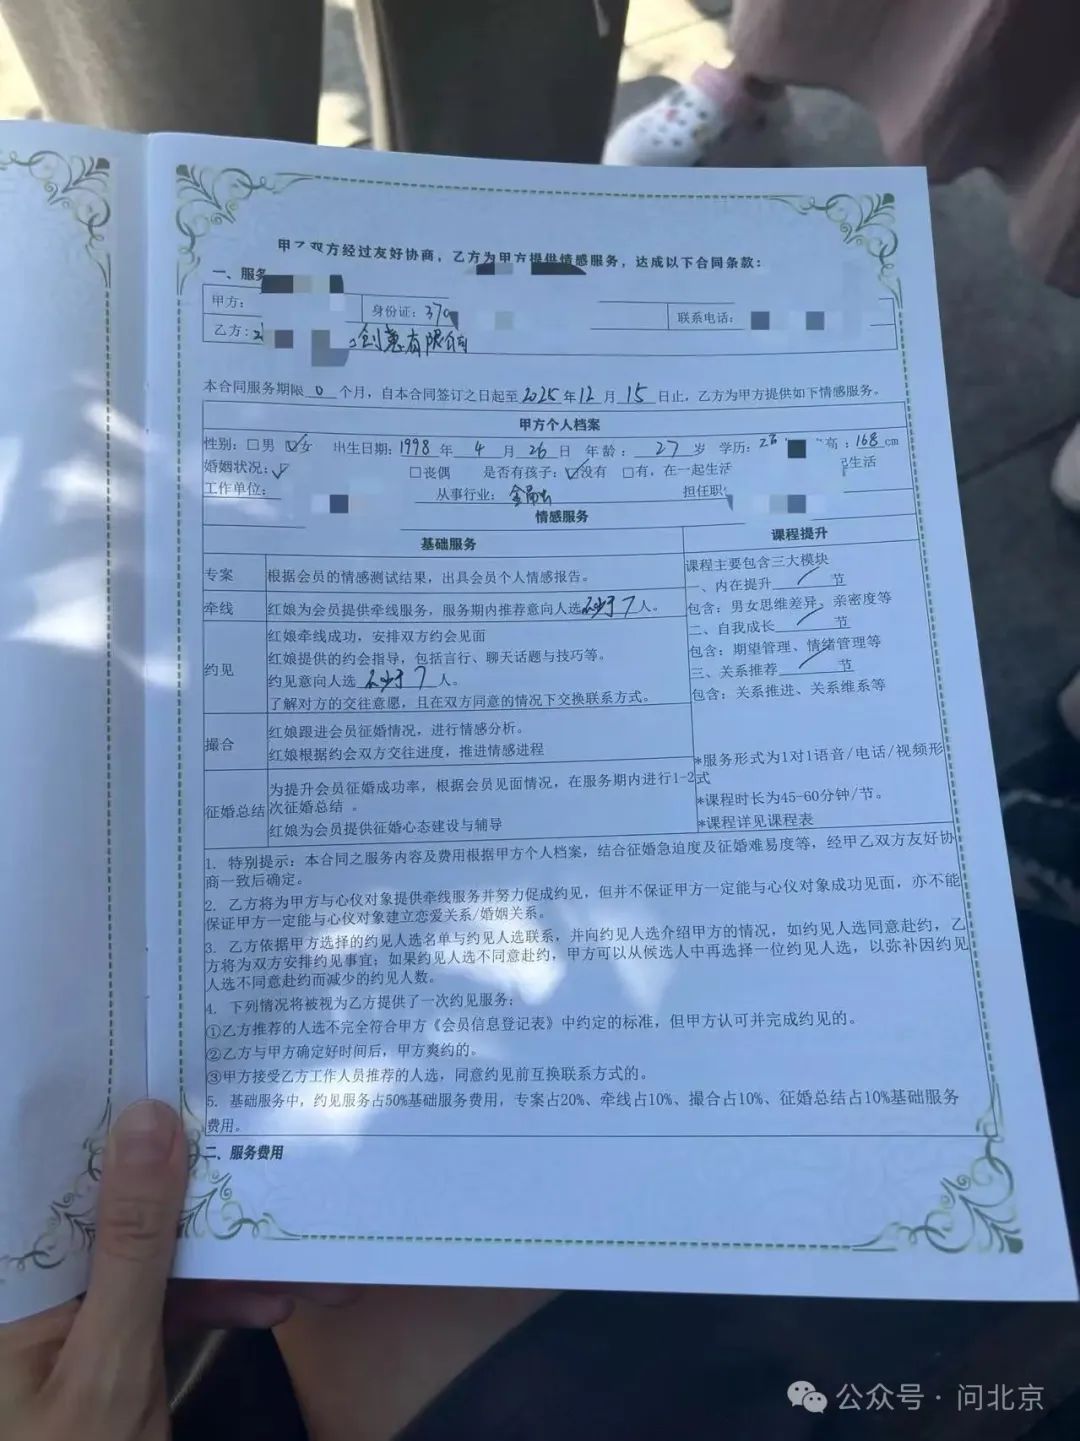 甲乙双方经过友好协商，乙方为甲方提供情感服务，达成以下合同条款：
一、服务
甲方： 身份证：370 联系电话：
乙方： 创意有限公司
本合同服务期限 0 个月，自本合同签订之日起至 2025 年 12 月 15 日止，乙方为甲方提供如下情感服务。
甲方个人档案
性别：□男 ☑女 出生日期：1998 年 4 月 26 日 年龄：27 岁 学历： 高：168cm
婚姻状况： □丧偶 是否有孩子：☑没有 □有，在一起生活 生活
工作单位： 从事行业：金融 担任职
情感服务
基础服务
课程提升
专案 根据会员的情感测试结果，出具会员个人情感报告。
牵线 红娘为会员提供牵线服务，服务期内推荐意向人选不少于7人。
约见
红娘牵线成功，安排双方约会见面
红娘提供的约会指导，包括言行、聊天话题与技巧等。
约见意向人选 不少于7 人。
了解对方的交往意愿，且在双方同意的情况下交换联系方式。
撮合
红娘跟进会员征婚情况，进行情感分析。
红娘根据约会双方交往进度，推进情感进程
征婚总结
为提升会员征婚成功率，根据会员见面情况，在服务期内进行1-2
次征婚总结 。
红娘为会员提供征婚心态建设与辅导
课程主要包含三大模块
一、内在提升 / 节
包含：男女思维差异、亲密度等
二、自我成长 / 节
包含：期望管理、情绪管理等
三、关系推荐 / 节
包含：关系推进、关系维系等
*服务形式为1对1语音/电话/视频形
式
*课程时长为45-60分钟/节。
*课程详见课程表
1. 特别提示：本合同之服务内容及费用根据甲方个人档案，结合征婚急迫度及征婚难易度等，经甲乙双方友好协
商一致后确定。
2. 乙方将为甲方与心仪对象提供牵线服务并努力促成约见，但并不保证甲方一定能与心仪对象成功见面，亦不能
保证甲方一定能与心仪对象建立恋爱关系/婚姻关系。
3. 乙方依据甲方选择的约见人选名单与约见人选联系，并向约见人选介绍甲方的情况，如约见人选同意赴约，乙
方将为双方安排约见事宜；如果约见人选不同意赴约，甲方可以从候选人中再选择一位约见人选，以弥补因约见
人选不同意赴约而减少的约见人数。
4. 下列情况将被视为乙方提供了一次约见服务：
①乙方推荐的人选不完全符合甲方《会员信息登记表》中约定的标准，但甲方认可并完成约见的。
②乙方与甲方确定好时间后，甲方爽约的。
③甲方接受乙方工作人员推荐的人选，同意约见前互换联系方式的。
5. 基础服务中，约见服务占50%基础服务费用，专案占20%、牵线占10%、撮合占10%、征婚总结占10%基础服务
费用。
二、服务费用
公众号·问北京